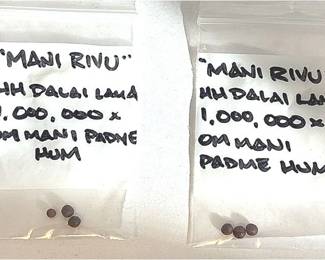 "MANI RIVU"
HH DALAI LAMA
1,000,000 x
OM MANI PADME
HUM
"MANI RIVU
HH DALAI LAM
1,000,000 x
OM MANI
PADME HUM